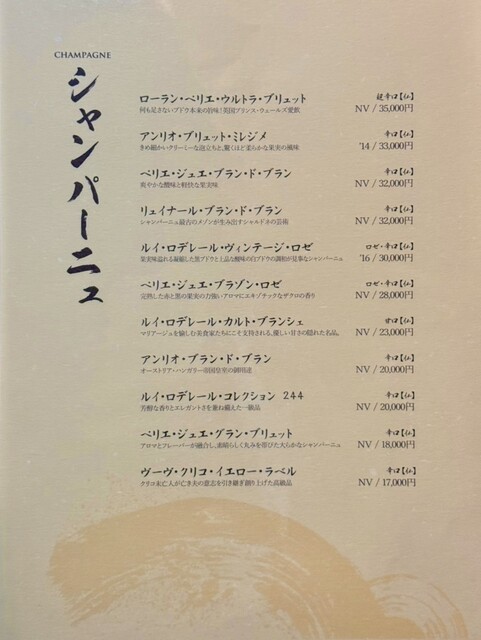 CHAMPAGNE
シャンパーニュ
ローラン・ペリエ・ウルトラ・ブリュット 超辛口【仏】
何も足さないブドウ本来の旨味!英国プリンス・ウェールズ愛飲 NV / 35,000円
アンリオ・ブリュット・ミレジメ 辛口【仏】
きめ細かいクリーミーな泡立ちと、驚くほど柔らかな果実の風味 '14 / 33,000円
ベリエ・ジュエ・ブラン・ド・ブラン 辛口【仏】
爽やかな酸味と軽快な果実味 NV / 32,000円
リュイナール・ブラン・ド・ブラン 辛口【仏】
シャンパーニュ最古のメゾンが生み出すシャルドネの芸術 NV / 32,000円
ルイ・ロデレール・ヴィンテージ・ロゼ ロゼ・辛口【仏】
果実味溢れる凝縮した黒ブドウと上品な酸味の白ブドウの調和が見事なシャンパーニュ '16 / 30,000円
ベリエ・ジュエ・ブラゾン・ロゼ ロゼ・辛口【仏】
完熟した赤と黒の果実の力強いアロマにエキゾチックなザクロの香り NV / 28,000円
ルイ・ロデレール・カルト・ブランシェ 甘口【仏】
マリアージュを愉しむ美食家たちにこそ支持される、優しい甘さの隠れた名品。 NV / 23,000円
アンリオ・ブラン・ド・ブラン 辛口【仏】
オーストリア・ハンガリー帝国皇室の御用達 NV / 20,000円
ルイ・ロデレール・コレクション 244 辛口【仏】
芳醇な香りとエレガントさを兼ね備えた一級品 NV / 20,000円
ベリエ・ジュエ・グラン・ブリュット 辛口【仏】
アロマとフレーバーが融合し、素晴らしく丸みを帯びた大らかなシャンパーニュ NV / 18,000円
ヴーヴ・クリコ・イエロー・ラベル 辛口【仏】
クリコ未亡人が亡き夫の意志を引き継ぎ創り上げた高級品 NV / 17,000円